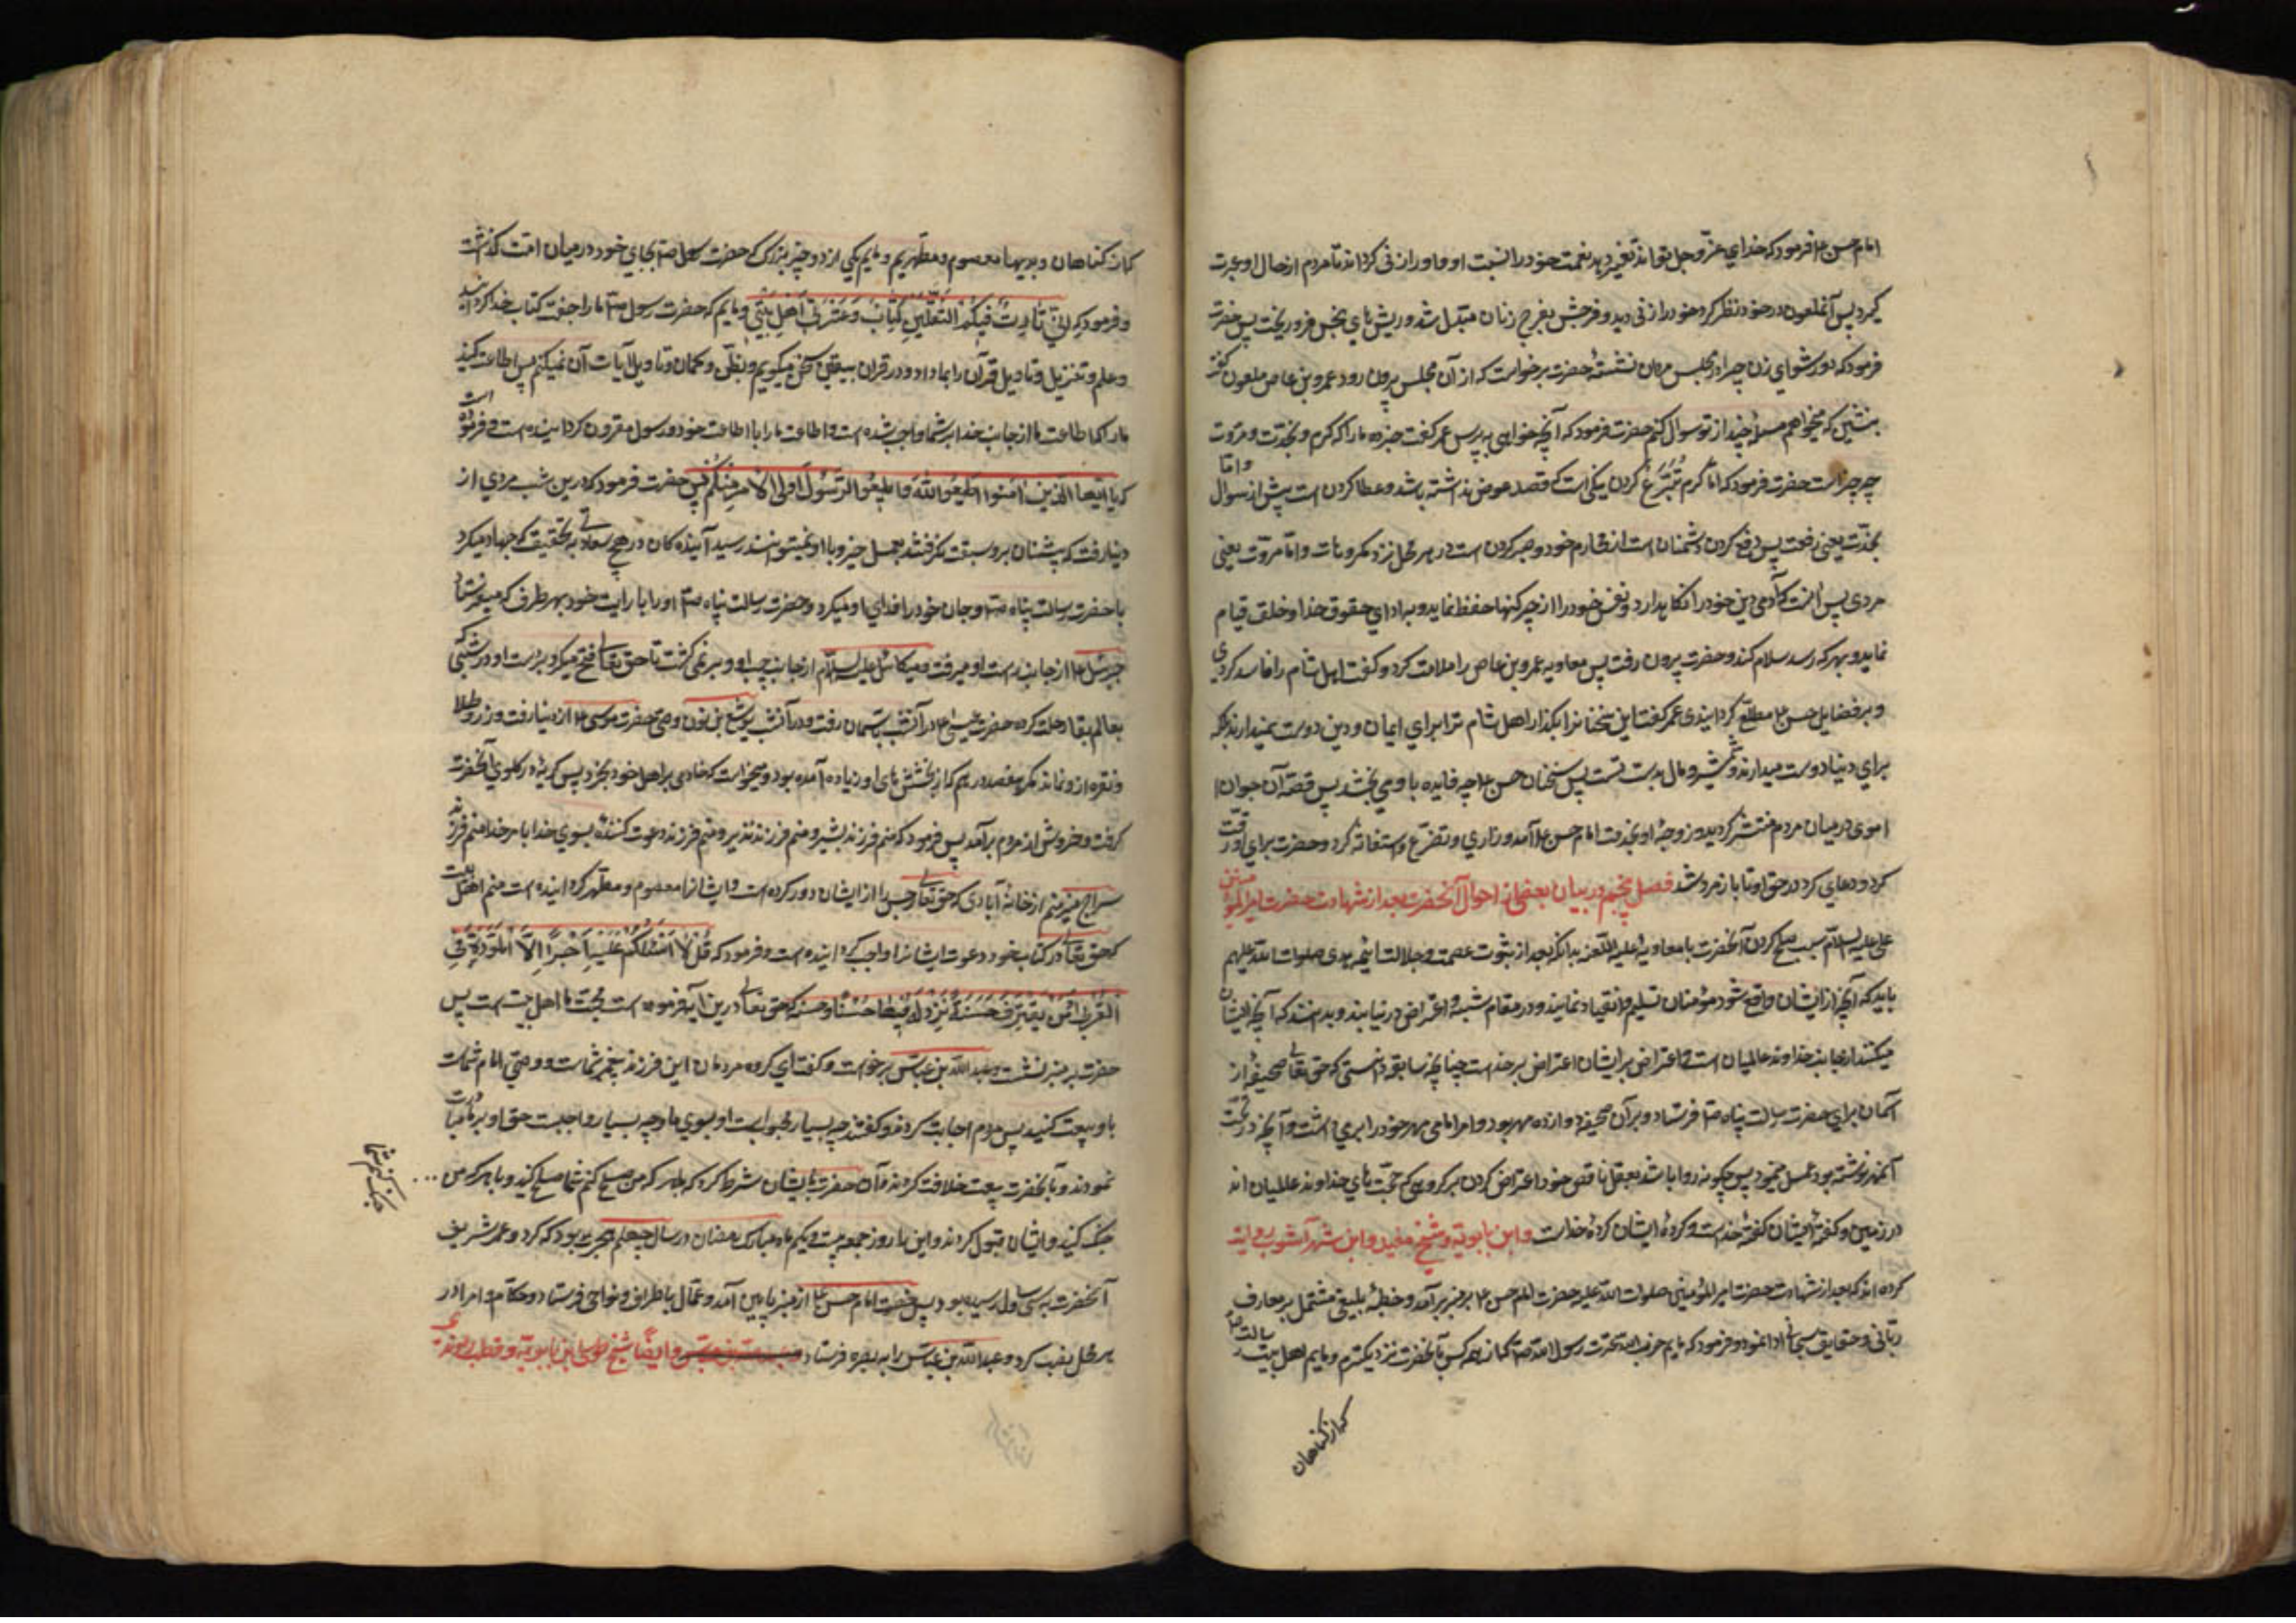 امام حسن ع فرمود که خدای عزّ و جل تواند تغییر دهد نعمت خود را نسبت او و او را زنی گرداند تا مردم از حال او عبرت
گیرد پس آنملعون در خود نظر کرد خود را زنی دید و فرجش بفرج زنان مبدّل شد و ریش های نجس فرو ریخت پس حضرت
فرمود که دور شو ای زن چرا در مجلس مردان نشستهٔ حضرت برخواست که از آن مجلس بیرون رود عمرو بن عاص ملعون گفت
بنشین که میخواهم مسئلهٔ چند از تو سوال کنم حضرت فرمود که آنچه خواهی به پرس عمر گفت خبر ده مارا که کرم و نجدت و مروت
چه چیز است حضرت فرمود که امّا کرم تبرّع کردن به نیکی است که قصد عوض نداشته باشد و عطا کردن است پیش از سوال و امّا
نجدت یعنی رفعت پس دفع کردن دشمنان است از محارم خود و صبر کردن است در هر محل نزد مکروهات و امّا مروّت یعنی
مردی پس آنست که آدمی دین خود را نگاه بدارد و نفس خود را از چرکنیها حفظ نماید و به ادای حقوق خدا و خلق قیام
نماید و بهر که رسد سلام کند و حضرت بیرون رفت پس معاویه عمرو بن عاص را ملامت کرد و گفت اهل شام را فاسد کردی
و بر فضایل حسن ع مطلع گردانیدی عمر گفت این سخنانرا بگذار اهل شام ترا برای ایمان و دین دوست نمیدارند بلکه
برای دنیا دوست میدارند و شمشیر و مال بدست تست پس سخنان حسن ع چه فایده باو می بخشد پس قصهٔ آن جوان
اموی در میان مردم منتشر گردید و زوجهٔ او بخدمت امام حسن ع آمد و زاری و تضرّع و استغاثه کرد و حضرت برای او رقّت
کرد و دعای کرد در حق او تا باز مرد شد فصل پنجم در بیان بعضی از احوال آنحضرت بعد از شهادت حضرت امیر المؤمنین
علی علیه السلام سبب صلح کردن آنحضرت با معاویه علیه اللعنه بدانکه بعد از ثبوت عصمت و جلالت ائمه هدی صلوات الله علیهم
باید که آنچه از ایشان واقع شود مؤمنان تسلیم و انقیاد نمایند و در مقام شبهه و اعتراض در نیایند و بدانند که آنچه ایشان
میکنند از جانب خداوند عالمیان است و اعتراض بر ایشان اعتراض بر خداست چنانچه سابقا دانستی که حق تعالی صحیفهٔ از
آسمان برای حضرت رسالت پناه ص فرستاد و بر آن صحیفه دوازده مهر بود و هر امامی مهر خود را برمی داشت و آنچه در تحت
آنمهر نوشته بود عمل مینمود پس چگونه روا باشد بعقل ناقص خود اعتراض کردن بر گروهی که حجّت های خداوند عالمیان اند
در زمین و گفتهٔ ایشان گفتهٔ خداست و کردهٔ ایشان کردهٔ خداست و ابن بابویه و شیخ مفید و ابن شهرآشوب روایت
کرده اند که بعد از شهادت حضرت امیر المؤمنین صلوات الله علیه حضرت امام حسن ع بر منبر برآمد و خطبهٔ بلیغی مشتمل بر معارف
ربّانی و حقایق سبحانی ادا نمود و فرمود که مایم حزب الله عترت رسول الله ص که از همه کس بآنحضرت نزدیکتریم و مایم اهل بیت رسالت
که از گناهان
که از گناهان و بدیها معصوم و مطهّریم و مایم یکی از دو چیز بزرگ که حضرت رسول ص بجای خود در میان امّت گذاشت
و فرمود که اِنّی تارِکٌ فیکُمُ الثَّقَلَینِ کِتابَ وَعِتْرَتی اَهْلِ بَیْتی و مایم که حضرت رسول ص مارا جفت کتاب خدا گردانید
و علم و تنزیل و تاویل قرآن را بما داد و در قران بیقین سخن میگویم و بظنّ و گمان تاویل آیات آن نمیکنم پس اطاعت کنید
مارا که اطاعت ما از جانب خدا بر شما واجب شده است و اطاعت مارا با اطاعت خود و رسول مقرون گردانیده است و فرموده است
که یا ایّها الّذین آمنوا اطیعوا الله و اطیعوا الرّسول و اولی الامر منکم پس حضرت فرمود که درین شب مردی از
دنیا رفت که پیشینان برو سبقت نگرفتند بعمل خیر و باو نمیتوانند رسید آینده کان در هیچ سعادتی به تحقیق که جهاد میکرد
با حضرت رسالت پناه ص و جان خود را فدای او میکرد و حضرت رسالت پناه ص او را با رایت خود بهر طرف که میفرستاد
جبرئیل ع از جانب راست او میرفت و میکائیل علیه السلام از جانب چپ او و بر نمی گشت تا حق تعالی فتح میکرد بر دست او در شبی که
بعالم بقا رحلت کرد حضرت عیسی ع در آنشب بآسمان رفت و در آنشب یوشع بن نون وصیّ حضرت موسی ع از دنیا رفت و زر و طلا
و نقره ازو نماند مگر هفصد درهم که از بخشش های او زیاده آمده بود و میخواست که خادمی برای اهل خود بخرد پس گریه در گلوی آنحضرت
گرفت و خروش از مردم برآمد پس فرمود که منم فرزند بشیر و منم فرزند نذیر و منم فرزند دعوت کننده بسوی خدا بامر خدا منم فرزند
سراج منیر منم از خانه آبادی که حق تعالی رجس را از ایشان دور کرده است و ایشانرا معصوم و مطهّر گردانیده است منم اهل بیت
که حق تعالی در کتاب خود دعوت ایشانرا واجب گردانیده است و فرموده که قُلْ لا اَسْئَلُکُمْ عَلَیْهِ اَجْرًا اِلَّا الْمَوَدَّةَ فِی
الْقُرْبی وَ مَنْ یَقْتَرِفْ حَسَنَةً نَزِدْ لَهُ فیها حُسْنًا و حسنه که حق تعالی درین آیه فرموده است محبّت ما اهل بیت است پس
حضرت بر منبر نشست و عبد الله بن عبّاس برخواست و گفت ای گروه مردمان این فرزند پیغمبر شماست و وصیّ امام شماست
باو بیعت کنید پس مردم اجابت کردند و گفتند چه بسیار محبوب است او بسوی ما و چه بسیار واجبست حق او بر ما مبادرت
نمودند و بآنحضرت بیعت خلافت کردند و آن حضرت با ایشان شرط کرد که با هر که من صلح کنم شما صلح کنید و با هر که من
جنگ کنم شما
جنگ کنید و ایشان قبول کردند و این ها روز جمعه بیست و یکم ماه مبارک رمضان در سال چهلم هجرت بود که کرد و عمر شریف
آنحضرت به سی سال رسیده بود پس حضرت امام حسن ع از منبر پایین آمد و عمّال باطراف و نواحی فرستاد و حکّام و امرا در
هر محل نصب کرد و عبد الله بن عبّاس را به بصره فرستاد و ایضا شیخ طوسی ابن بابویه و قطب راوندی